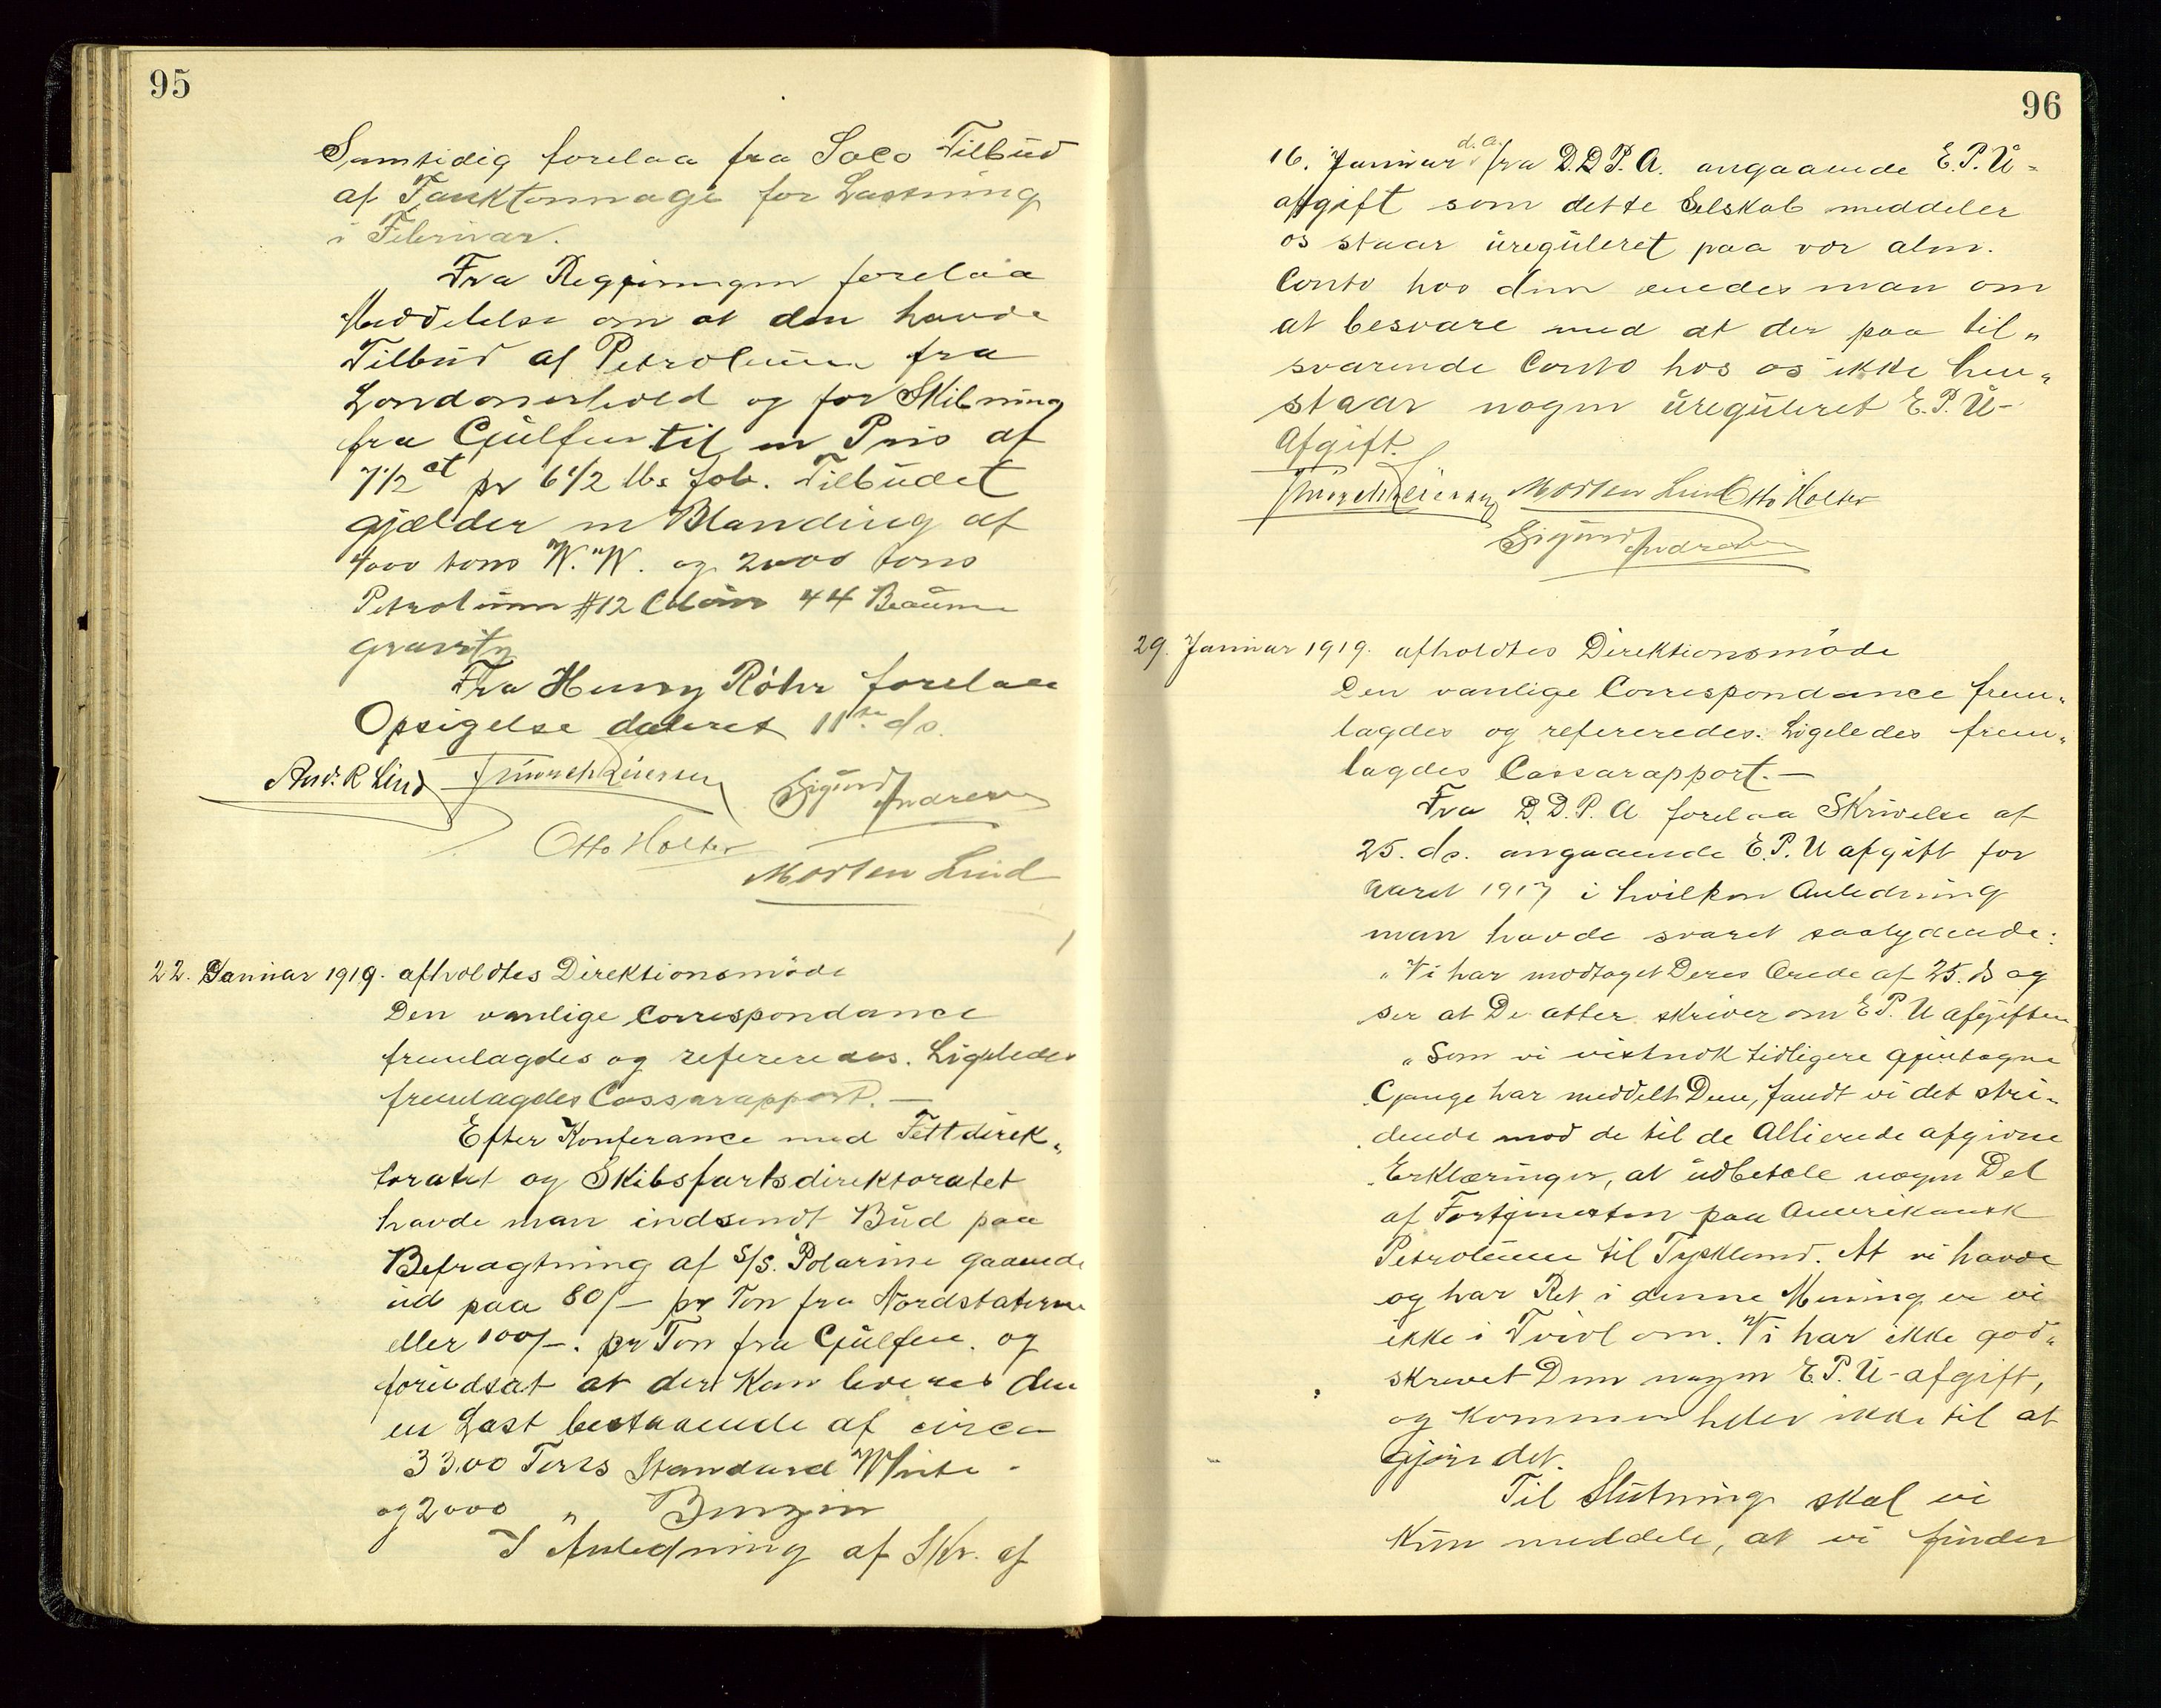 95
Samtidig forelaa fra Soco Tilbud
af Tanktonnage for Lastning
i Februar.
Fra Regjeringen forelaa
Meddelelse om at den havde
Tilbud af Petroleum fra
Londonerhold og for Skibning
fra Gulfen til en Pris af
7 1/2 ct pr 6 1/2 lbs fob. Tilbudet
gjælder en Blanding af
4000 tons W.W. og 2000 tons
Petroleum #12 Colour 44 Beaume
gravity
Fra Henry Röhr forelaa
Opsigelse dateret 11te ds.
And. R Lind
Sigurd Andresen
Otto Holter
Morten Lind
22. Januar 1919. afholdtes Direktionsmöde
Den vanlige Correspondance
fremlagdes og refereredes. Ligeledes
fremlagdes Cassarapport. —
Efter Konferance med Fettdirek„
toratet og Skibsfartsdirektoratet
havde man indsendt Bud paa
Befragtning af S/S. Polarine gaaende
ud paa 80/- pr Ton fra Nordstaterne
eller 100/-. pr Ton fra Gulfen. og
forudsat at der kan leveres den
en Last bestaaende af circa
3300 Tons Standard White -
og 2000 „ Benzin
I Anledning af Skr. af
96
16. Januar d.a. fra D.D.P.A. angaaende E.P.U-
afgift som dette Selskab meddeler
os staar ureguleret paa vor alm.
Conto hos dem enedes man om
at besvare med at der paa til„
svarende Conto hos os ikke hen„
staar nogen ureguleret E.P.U-
Afgift.
Morten Lind Otto Holter
Sigurd Andresen
29. Januar 1919. afholdtes Direktionsmöde
Den vanlige Correspondance frem„
lagdes og refereredes. Ligeledes frem„
lagdes Cassarapport. —
Fra D.D.P.A. forelaa Skrivelse af
25. ds. angaaende E.P.U afgift for
Aaret 1917 i hvilken Anledning
man havde svaret saalydende:
„Vi har modtaget Deres Ærede af 25. ds og
ser at De atter skriver om E.P.U afgiften
„Som vi vistnok tidligere gjentagne
Gange har meddelt Dem, fandt vi det stri„
dende mod de til de Allierede afgivne
Erklæringer, at udbetale nogen Del
af Fortjenesten paa Amerikansk
Petroleum til Tyskland. At vi havde
og har Ret i denne Mening er vi
ikke i Tvivl om. Vi har ikke god„
skrevet Dem nogen E.P.U-afgift,
og kommer heller ikke til at
gjöre det.
Til Slutning skal vi
kun meddele, at vi finder